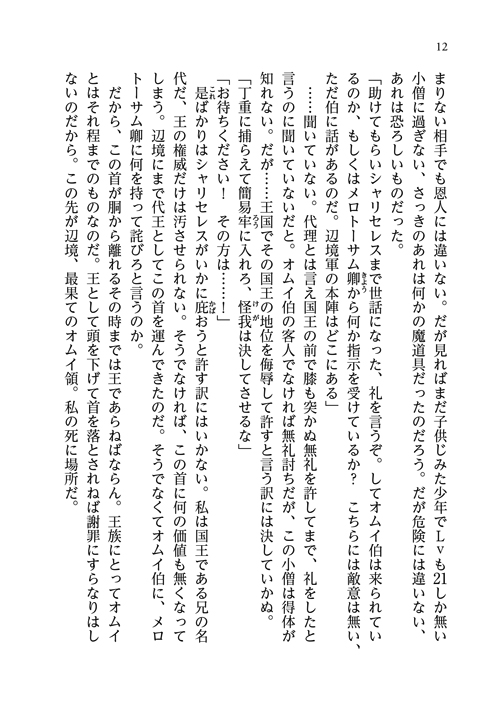 12
まりない相手でも恩人には違いない。だが見ればまだ子供じみた少年でＬｖも21しか無い
小僧に過ぎない、さっきのあれは何かの魔道具だったのだろう。だが危険には違いない、
あれは恐ろしいものだった。
「助けてもらいシャリセレスまで世話になった、礼を言うぞ。してオムイ伯は来られてい
るのか、もしくはメロトーサム卿から何か指示を受けているか？　こちらには敵意は無い、
ただ伯に話があるのだ。辺境軍の本陣はどこにある」
……聞いていない。代理とは言え国王の前で膝も突かぬ無礼を許してまで、礼をしたと
言うのに聞いていないだと。オムイ伯の客人でなければ無礼討ちだが、この小僧は得体が
知れない。だが……王国でその国王の地位を侮辱して許すと言う訳には決していかぬ。
「丁重に捕らえて簡易牢に入れろ、怪我は決してさせるな」
「お待ちください！　その方は……！」
是ばかりはシャリセレスがいかに庇おうと許す訳にはいかない。私は国王である兄の名
代だ、王の権威だけは汚させられない。そうでなければ、この首に何の価値も無くなって
しまう。辺境にまで代王としてこの首を運んできたのだ。そうでなくてオムイ伯に、メロ
トーサム卿に何を持って詫びろと言うのか。
だから、この首が胴から離れるその時までは王であらねばならん。王族にとってオムイ
とはそれ程までのものなのだ。王として頭を下げて首を落とされねば謝罪にすらなりはし
ないのだから。この先が辺境、最果てのオムイ領。私の死に場所だ。